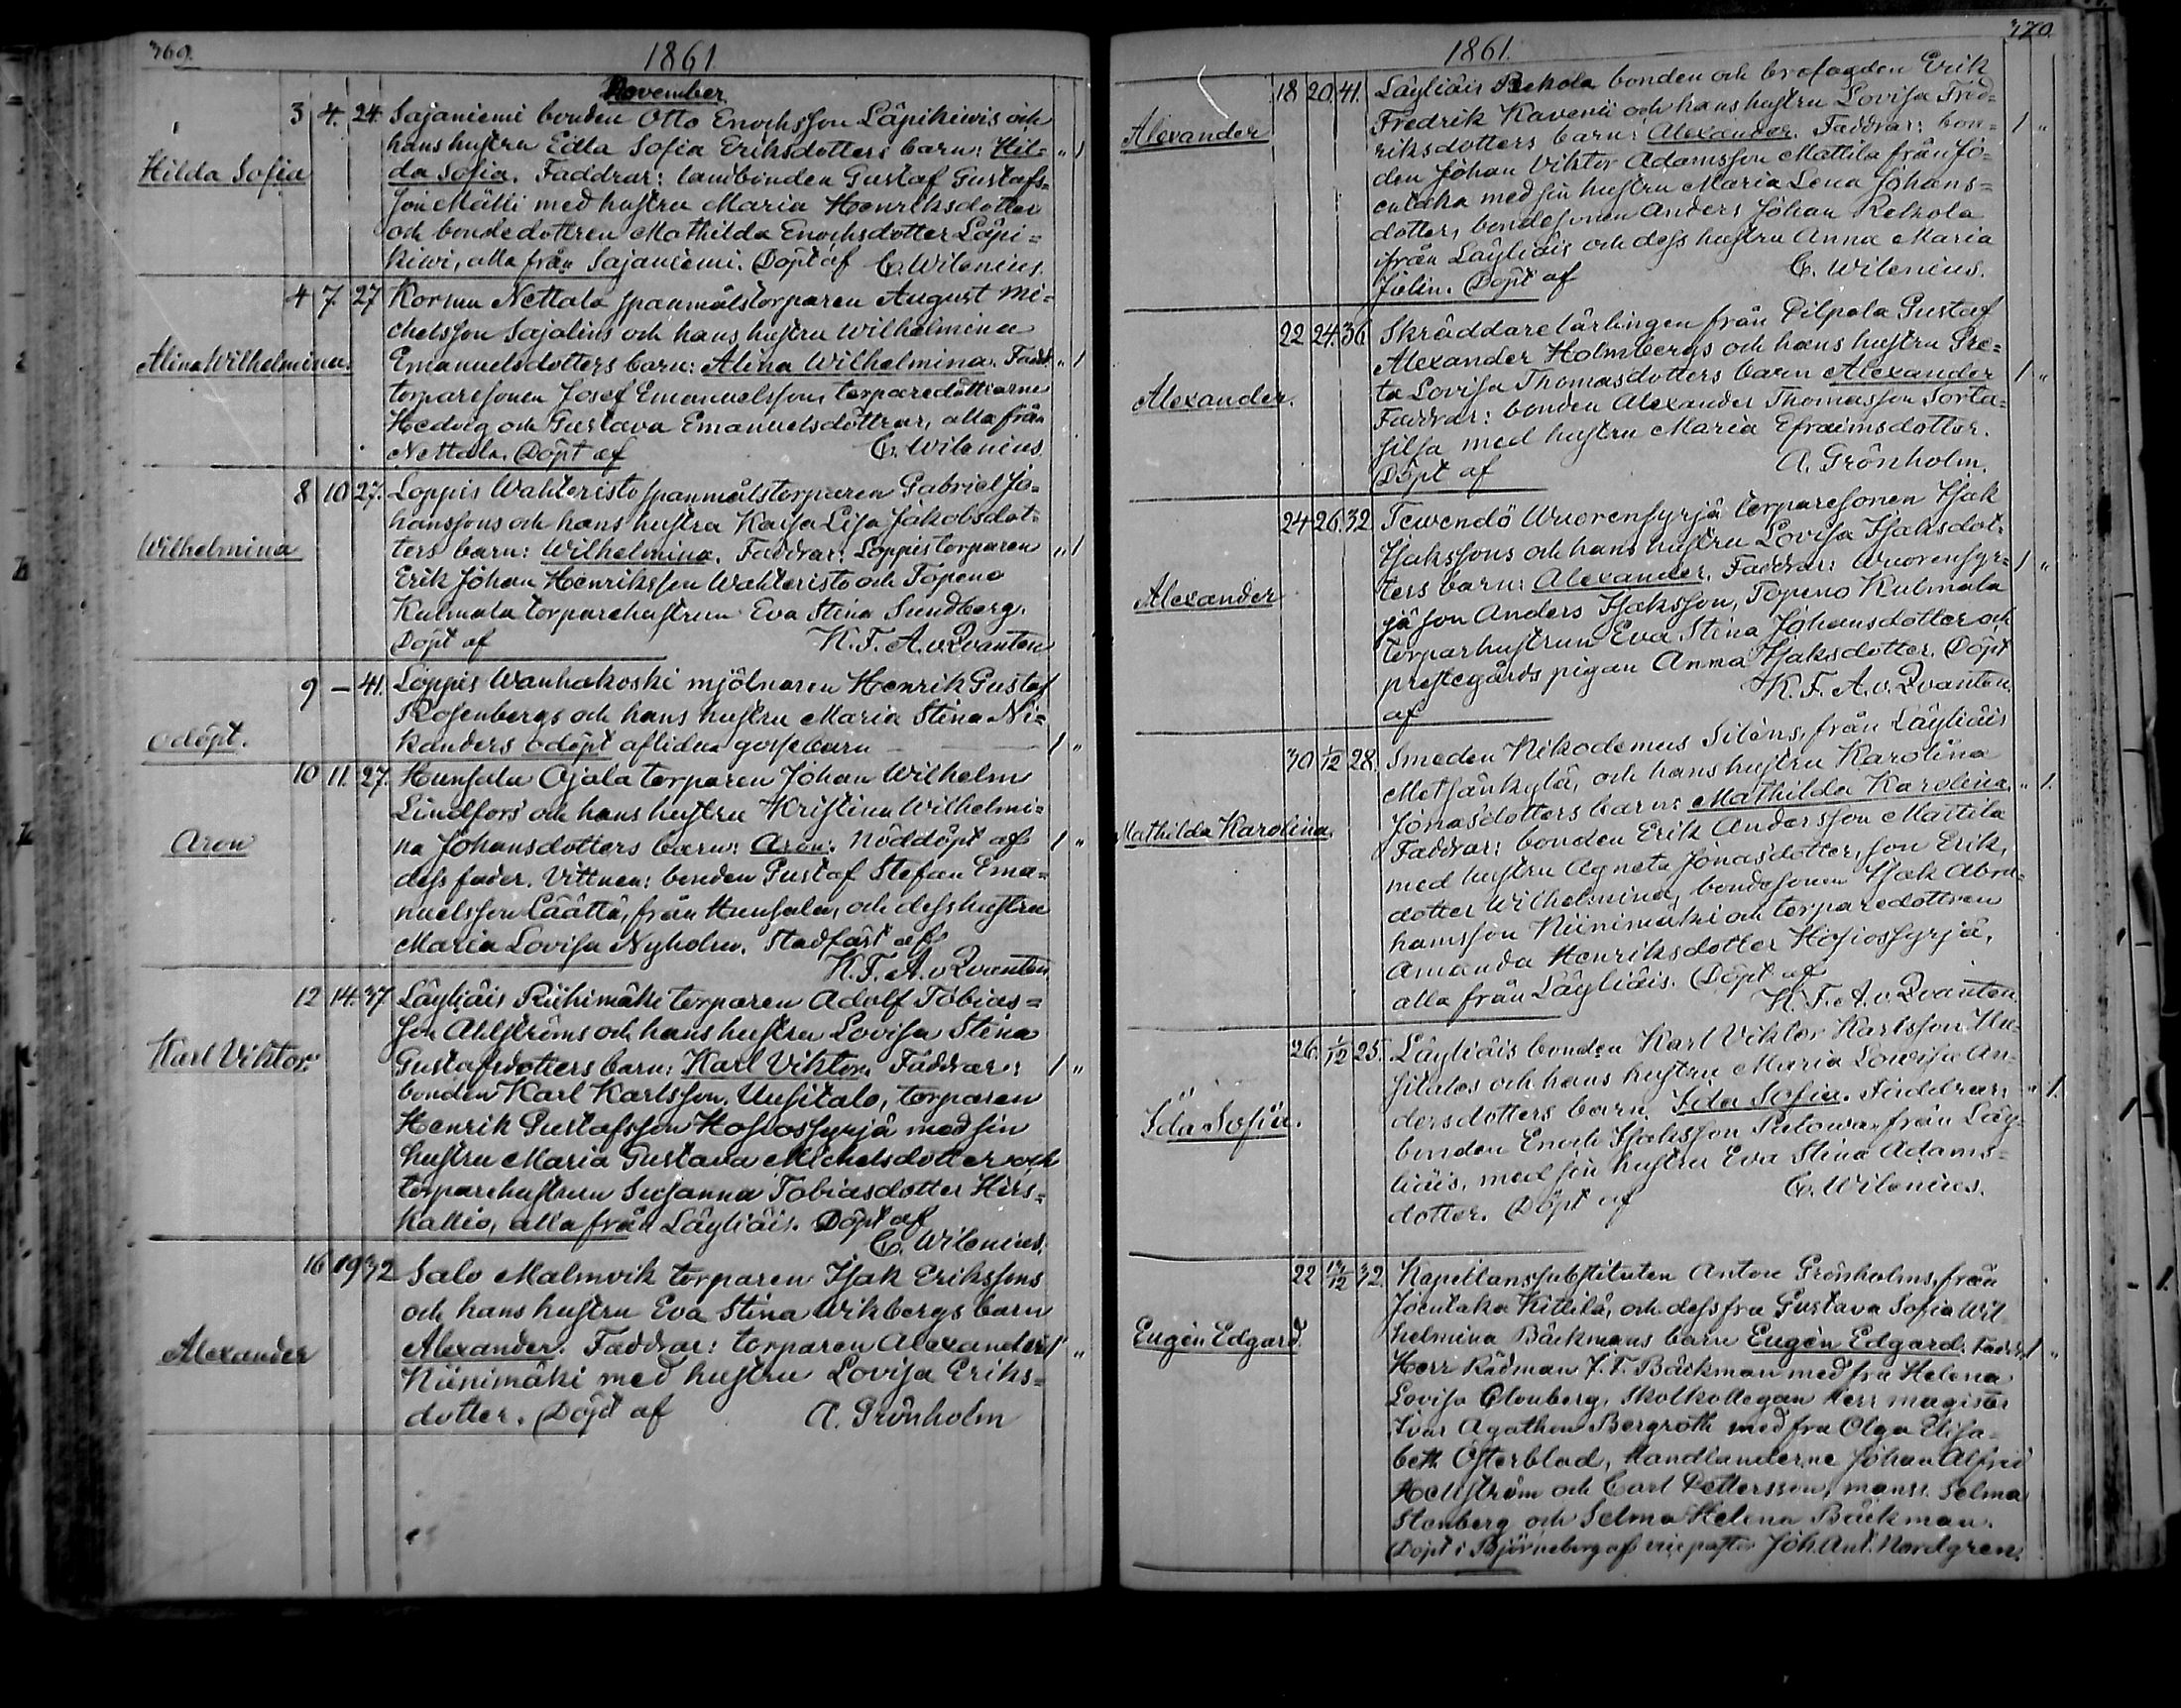 369.
1861.
November.
Hilda Sofia
3 4. 24. Sajaniemi bonden Otto Enochsson Läpikiwis och
hans hustru Edla Sofia Eriksdotters barn: Hil=
da Sofia. Faddrar: landbonden Gustaf Gustafs=
son Mälli med hustru Maria Henriksdotter
och bondedottren Mathilda Enochsdotter Läpi=
kiwi, alla från Sajaniemi. Döpt af C. Wilenius.
" 1
Alina Wilhelmina.
4 7. 27 Kormu Nettala spanmålstorparen August Mi=
chelsson Sajalins och hans hustru Wilhelmina
Emanuelsdotters barn: Alina Wilhelmina. Fadd.
torparesonen Josef Emanuelsson, torparedöttrarne
Hedvig och Gustava Emanuelsdöttrar, alla från
Nettala. Döpt af C. Wilenius
" 1
Wilhelmina
8 10 27. Loppis Wahteristo spanmålstorparen Gabriel Jo=
hanssons och hans hustru Kaisa Lisa Jakobsdot=
ters barn: Wilhelmina. Faddrar: Loppis torparen
Erik Johan Henriksson Wahteristo och Topeno
Kulmala torparehustrun Eva Stina Sundberg.
Döpt af K. F. A. v. Qvanten
" 1
Odöpt.
9 — 41. Loppis Wanhakoski mjölnaren Henrik Gustaf
Rosenbergs och hans hustru Maria Stina Ni=
kanders odöpt aflidna gossebarn —
1 "
Aron
10 11. 27. Hunsala Ojala torparen Johan Wilhelm
Lindfors och hans hustru Kristina Wilhelmi=
na Johansdotters barn: Aron. Nöddöpt af
dess fader. Vittnen: bonden Gustaf Stefan Ema=
nuelsson Läättä, från Hunsala, och dess hustru
Maria Lovisa Nyholm. Stadfäst af
K. F. A. v Qvanten
1 "
Karl Viktor.
12 14. 37 Läyliäis Riihimäki torparen Adolf Tobias=
son Ahlströms och hans hustru Lovisa Stina
Gustafsdotters barn: Karl Viktor. Faddrar:
bonden Karl Karlsson Uusitalo, torparen
Henrik Gustafsson Hosiossyrjä med sin
hustru Maria Gustava Michelsdotter och
torparehustrun Susanna Tobiasdotter Hirs=
kallio, alla från Läyliäis. Döpt af
C. Wilenius.
1 "
Alexander
16 19 32 Salo Malmvik torparen Isak Erikssons
och hans hustru Eva Stina Wikbergs barn
Alexander. Faddrar: torparen Alexander
Niinimäki med hustru Lovisa Eriks=
dotter. Döpt af A. Grönholm
1 "
370.
1861.
Alexander
18 20. 41. Läyliäis Rekola bonden och brofogden Erik
Fredrik Kavenii och hans hustru Lovisa Fred=
riksdotters barn: Alexander. Faddrar: bon=
den Johan Viktor Adamsson Mattila från Jo=
entaka med sin hustru Maria Lena Johans=
dotter, bondesonen Anders Johan Rekola
från Läyliäis och dess hustru Anna Maria
Döpt af C. Wilenius.
1 "
Alexander.
22 24. 36 Skräddarelärlingen från Pilpala Gustaf
Alexander Holmbergs och hans hustru Gre=
ta Lovisa Thomasdotters barn Alexander
Faddrar: bonden Alexander Thomasson Torta=
silja med hustru Maria Efraimsdotter.
Döpt af A. Grönholm.
1 "
Alexander
24 26. 32 Tewendö Wuorensyrjä torparesonen Isak
Isakssons och hans hustru Lovisa Isaksdot=
ters barn: Alexander. Faddrar: Wuorensyr=
jä son Anders Isaksson, Topeno Kulmala
torparhustrun Eva Stina Johansdotter och
prestegårds pigan Anna Isaksdotter. Döpt
af K. F. A. v. Qvanten
1 "
Mathilda Karolina.
30 1/12 28. Smeden Nikodemus Siléns, från Läyliäis
Metsänkylä, och hans hustru Karolina
Jonasdotters barn: Mathilda Karolina.
Faddrar: bonden Erik Andersson Mattila
med hustru Agneta Jonasdotter, son Erik,
dotter Wilhelmina, bondesonen Isak Abra=
hamsson Niinimäki och torparedottren
Amanda Henriksdotter Hosiossyrjä,
alla från Läyliäis. Döpt af
K. F. A. v. Qvanten.
" 1.
Ida Sofia.
26. 1/12 25. Läyliäis bonden Karl Viktor Karlsson Uu=
sitalos och hans hustru Maria Lovisa An=
dersdotters barn. Ida Sofia. Faddrar:
bonden Enoch Isaksson Palowa, från Läy=
liäis, med sin hustru Eva Stina Adams=
dotter. Döpt af C. Wilenius.
" 1.
Eugén Edgard.
22 /12 32. Kapellanssubstituten Anton Grönholms, från
Joentaka Kittilä, och dess fru Gustava Sofia Wil=
helmina Bäckmans barn Eugèn Edgard. Faddr.
Herr Rådman J. F. Bäckman med fru Helena
Lovisa, Skolkollegan Herr magister
Ivar Agathon Bergroth med fru Olga Elisa=
beth Österblad, Handlanderne Johan Alfred
Hellström och Carl Pettersson, mans. Selma
Stenberg och Selma Helena Bäckman.
Döpt i Björneborg af vice pastor Joh. Ant. Nordgren.
1 "